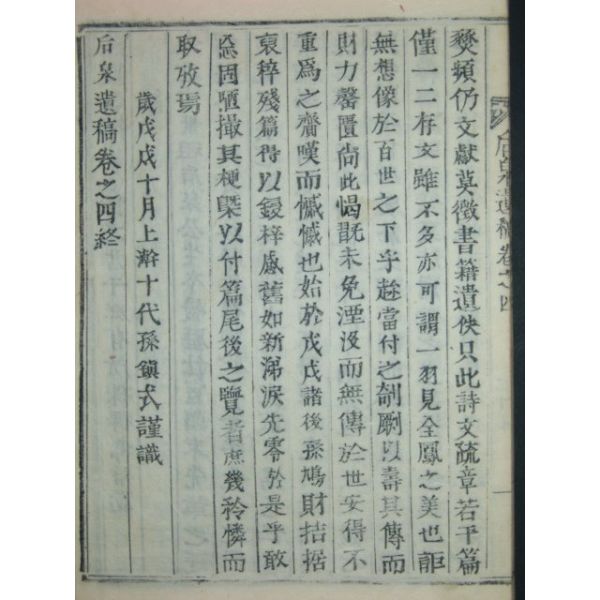 后泉遺稿卷之四
燹頻仍文獻莫徵書籍遺佚只此詩文疏章若干篇
僅一二存文雖不多亦可謂一羽見全鳳之美也詎
無想像於百世之下乎玆當付之剞劂以壽其傳而
財力罄匱尙此愒旣未免湮沒而無傳於世安得不
重爲之齎嘆而慽慽也始於戊戌諸後孫鳩財拮据
裒稡殘篇得以鋟梓感舊如新涕淚先零於是乎敢
忘固陋撮其梗槩以付篇尾後之覽者庶幾矜憐而
取攷焉
歲戊戌十月上澣十代孫鎭式謹識
后泉遺稿卷之四終